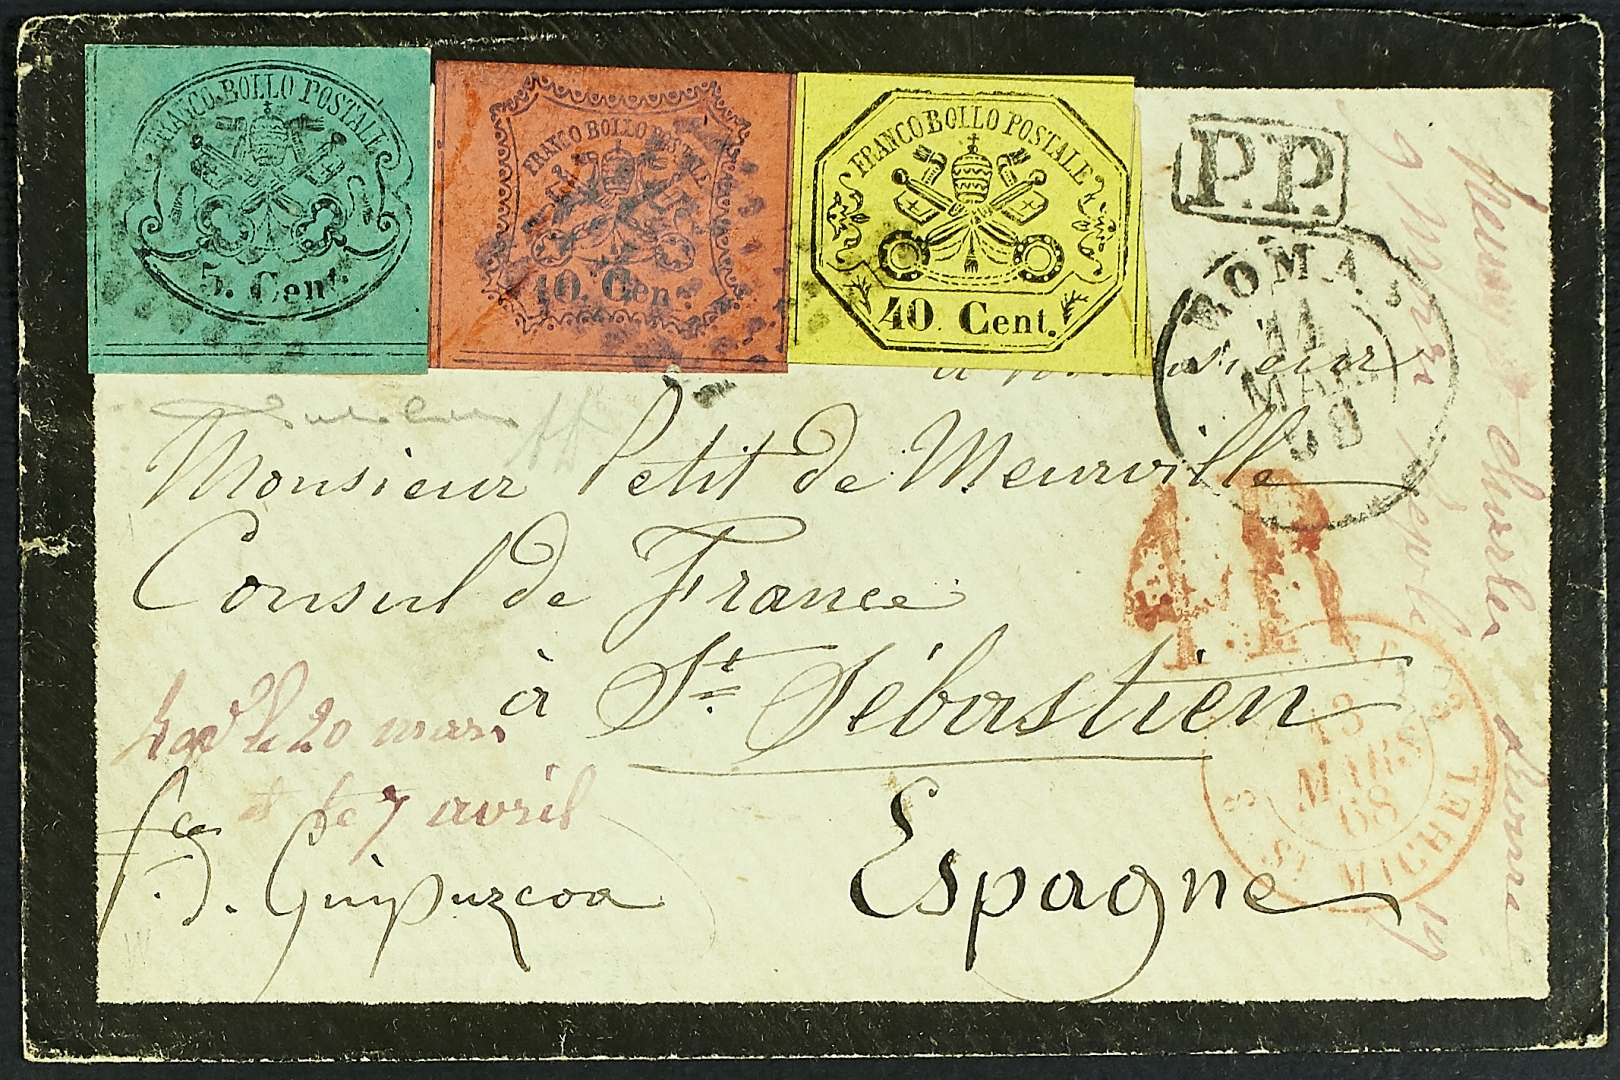 FRANCO BOLLO POSTALE
5. Cent.
FRANCO BOLLO POSTALE
10. Cent.
FRANCO BOLLO POSTALE
40 Cent.
P.P.
ROMA
11
MAR
68
à Monsieur
Monsieur Petit de Meurville
Consul de France
à St. Sébastien
Espagne
Guipuzcoa
le 20 mars
et le 7 avril
13
MARS
68
ST MICHEL